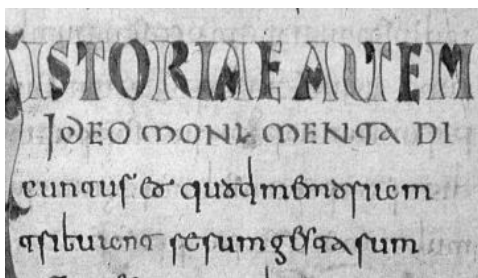 HISTORIAE AUTEM
IDEO MONUMENTA DI
cuntur eo quod memoriam
tribuant rerum gestarum